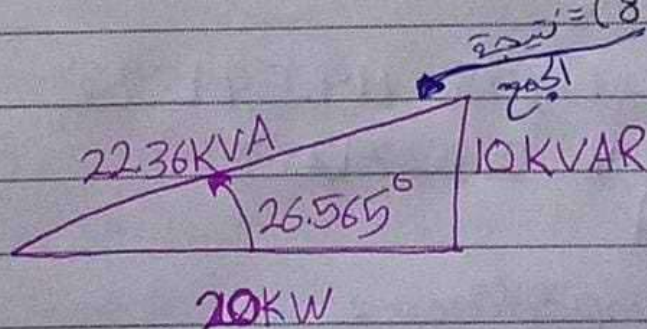 نتيجة = (8
الجمع
22.36KVA
10KVAR
26.565°
20KW